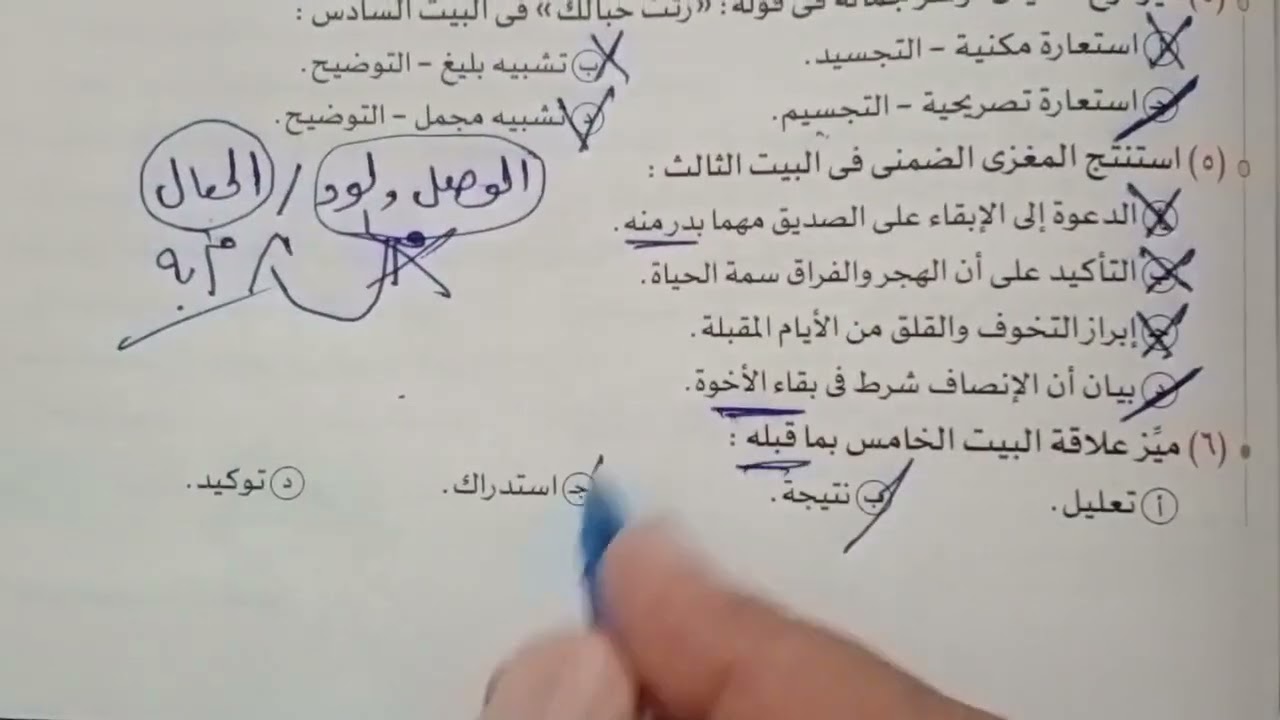 فى قوله : «رثت حبالك» فى البيت السادس :
أ استعارة مكنية – التجسيد.
ب تشبيه بليغ – التوضيح.
ج استعارة تصريحية – التجسيم.
د تشبيه مجمل – التوضيح.
الوصل ولود / الحمال
(٥) استنتج المغزى الضمنى فى البيت الثالث :
أ الدعوة إلى الإبقاء على الصديق مهما بدر منه.
ب التأكيد على أن الهجر والفراق سمة الحياة.
ج إبراز التخوف والقلق من الأيام المقبلة.
د بيان أن الإنصاف شرط فى بقاء الأخوة.
(٦) ميِّز علاقة البيت الخامس بما قبله :
أ تعليل.
ب نتيجة.
ج استدراك.
د توكيد.